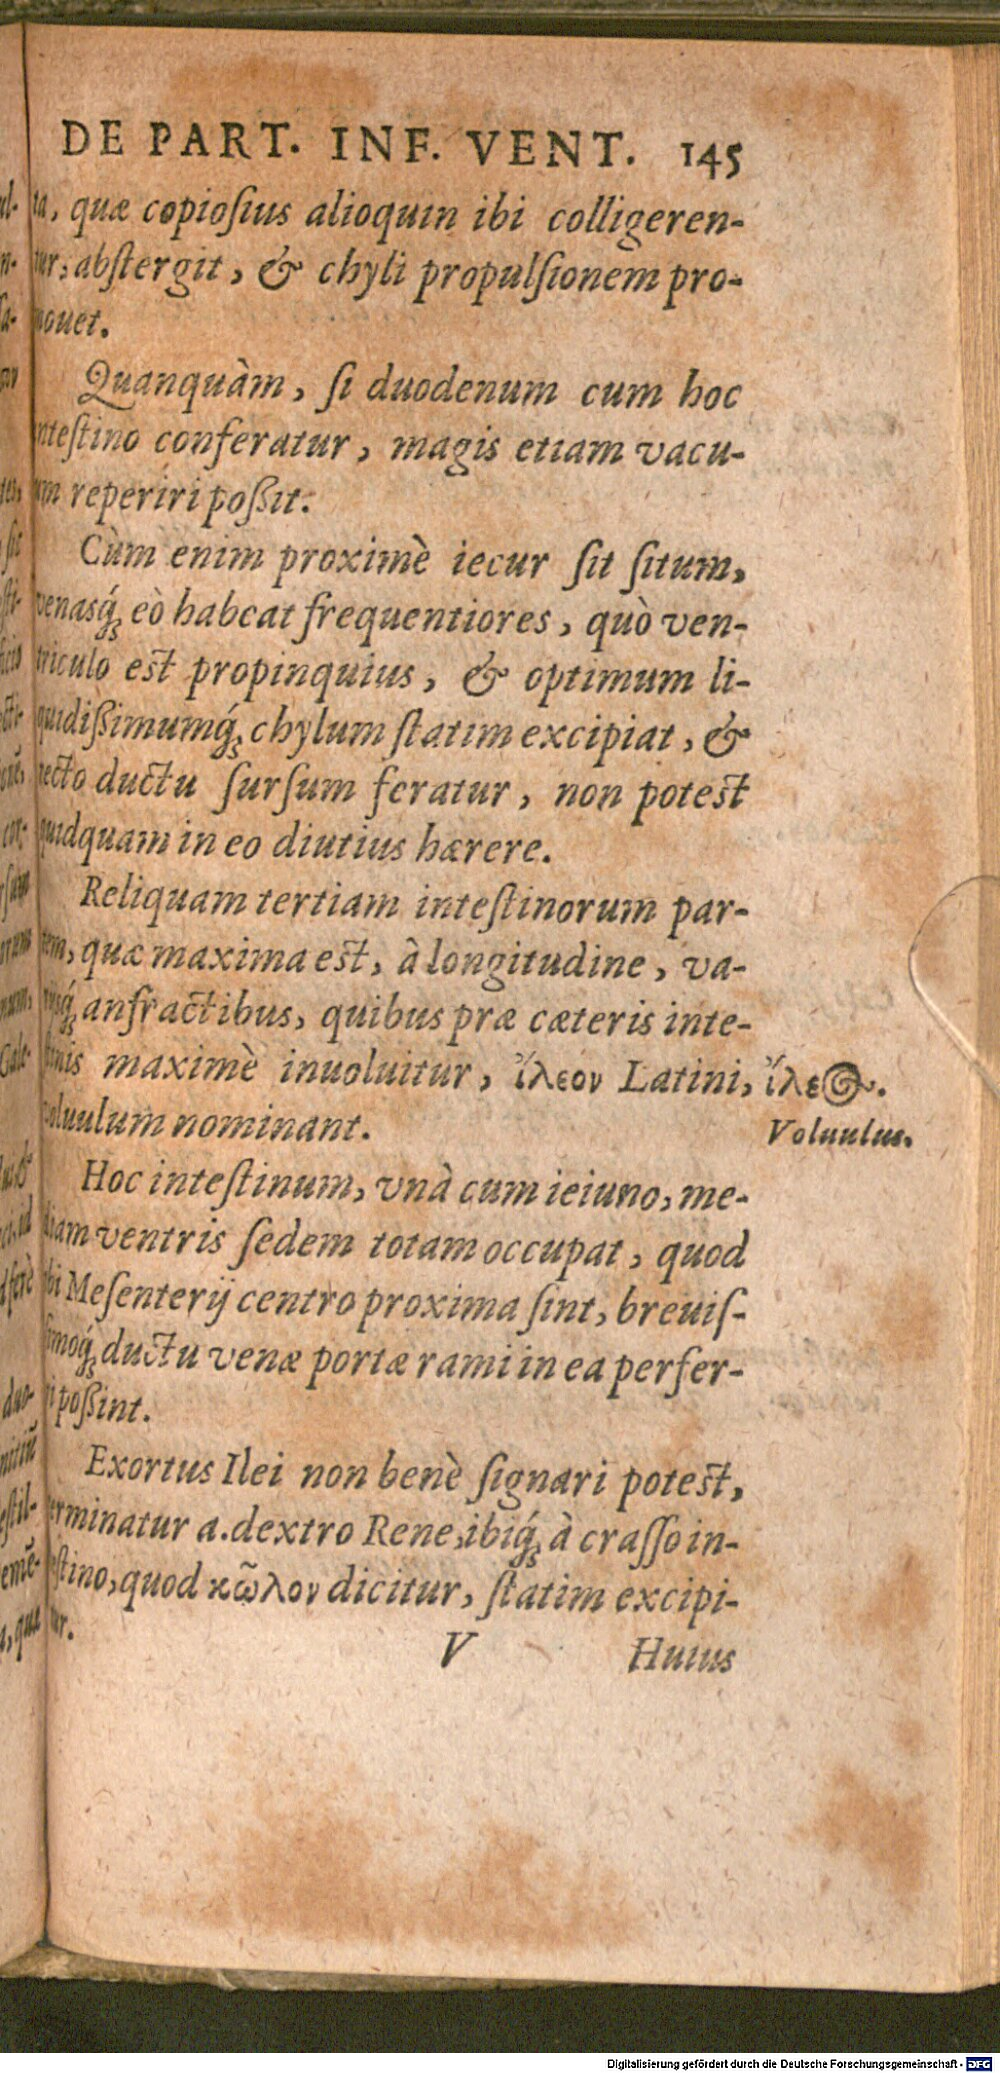 DE PART. INF. VENT. 145
ta, quæ copiosius alioquin ibi colligeren-
tur, abstergit, & chyli propulsionem pro-
mouet.
Quanquàm, si duodenum cum hoc
intestino conferatur, magis etiam vacu-
um reperiri poßit.
Cùm enim proximè iecur sit situm,
venasq́; eò habeat frequentiores, quò ven-
triculo est propinquius, & optimum li-
quidißimumq́; chylum statim excipiat, &
recto ductu sursum feratur, non potest
quidquam in eo diutius hærere.
Reliquam tertiam intestinorum par-
tem, quæ maxima est, à longitudine, va-
rijsq́; anfractibus, quibus præ cæteris inte-
stinis maximè inuoluitur, ἴλεον Latini,
ἴλεος.
voluulum nominant.
Voluulus.
Hoc intestinum, vnà cum ieiuno, me-
diam ventris sedem totam occupat, quod
ibi Mesenterij centro proxima sint, breuis-
simoq́; ductu venæ portæ rami in ea perfer-
ri poßint.
Exortus Ilei non benè signari potest,
terminatur a.dextro Rene, ibiq́; à crasso in-
testino, quod κῶλον dicitur, statim excipi-
tur.
V Huius
Digitalisierung gefördert durch die Deutsche Forschungsgemeinschaft - DFG